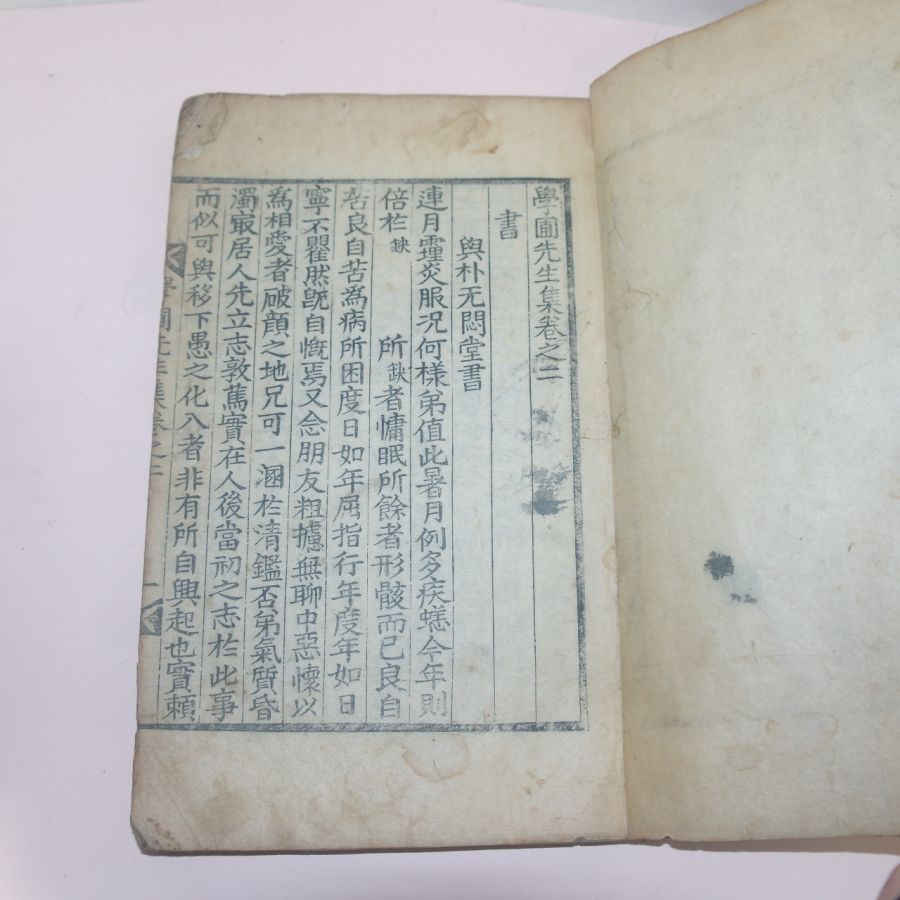 學圃先生集卷之二
書
與朴无悶堂書
連月霾炎服况何樣弟值此暑月例多疾恙今年則
倍於缺所缺者慵眠所餘者形骸而已良自
苦良自苦為病所困度日如年屈指行年度年如日
寧不瞿然旣自慨焉又念朋友粗攄無聊中惡懷以
為相愛者破顔之地兄可一溷於清鑑否弟氣質昏
濁㝡居人先立志敦篤實在人後當初之志於此事
而似可與移下愚之化入者非有所自興起也實賴
學圃先生集卷之二
一